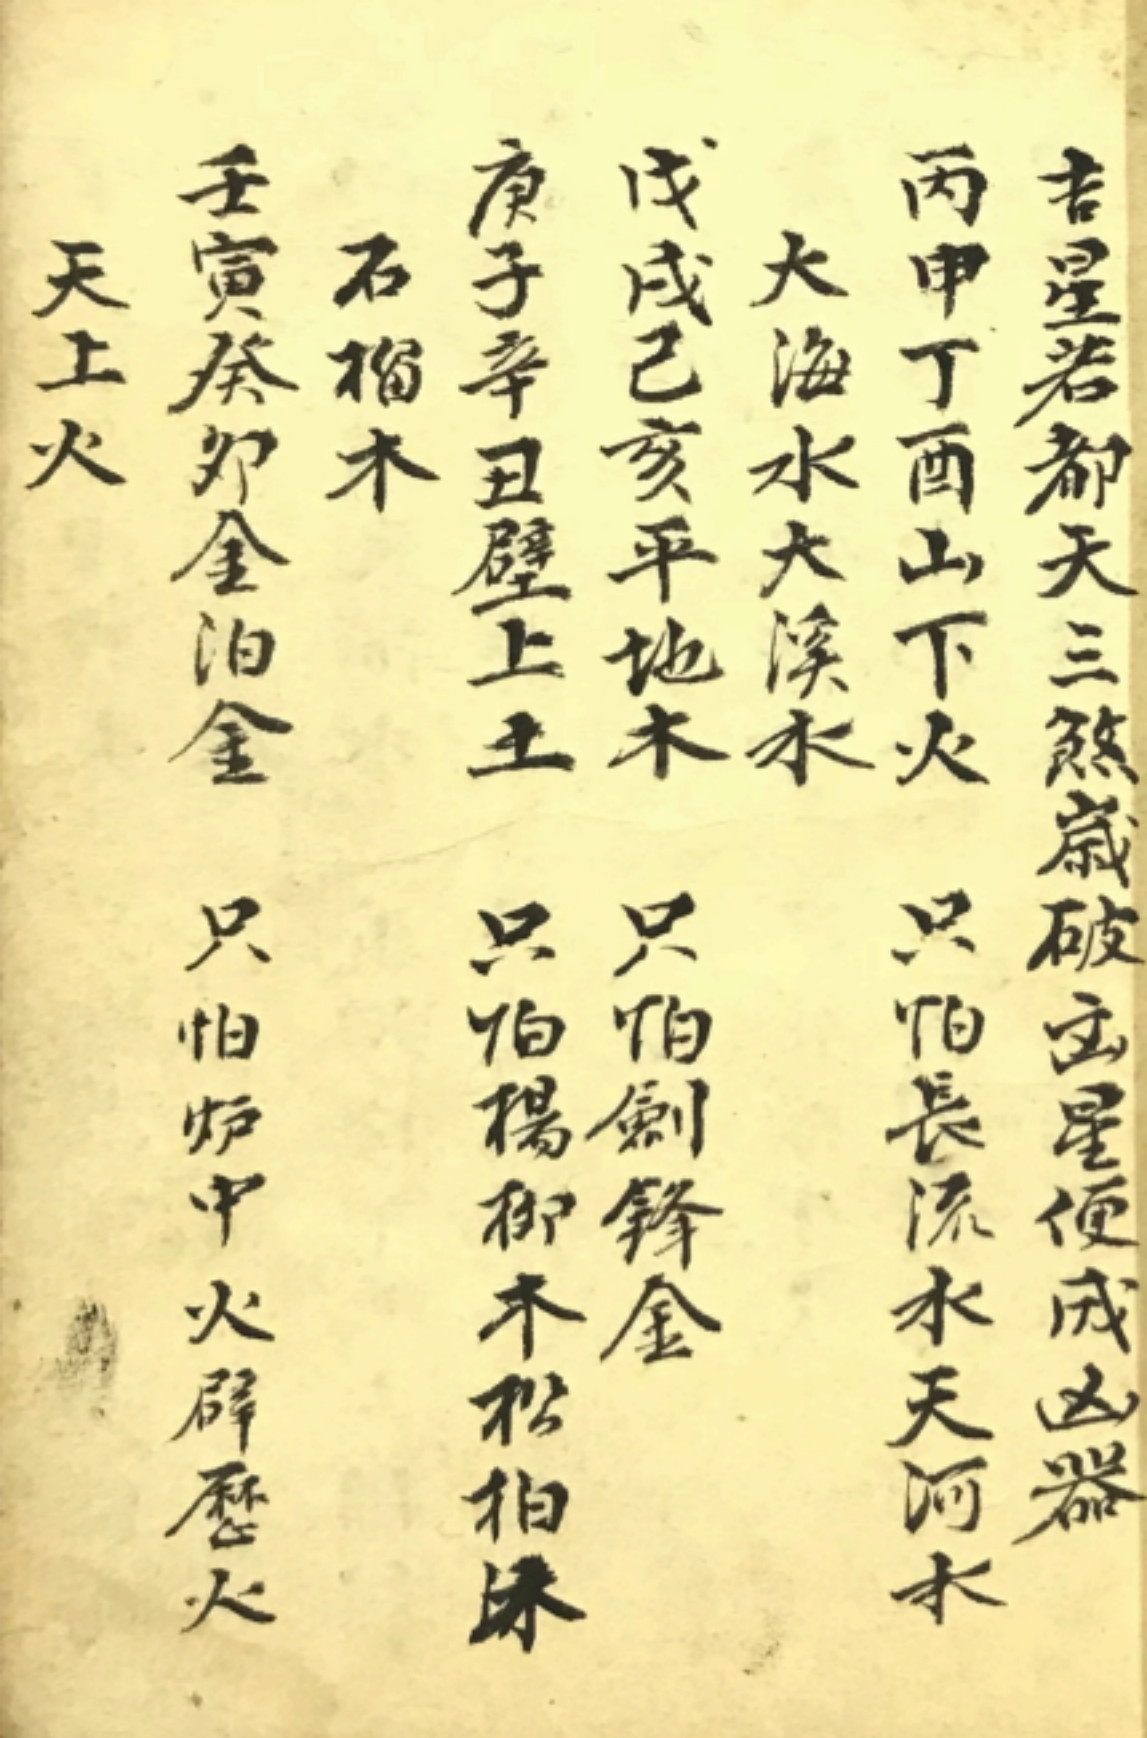 吉星若都天三煞歲破凶星便成凶器
丙申丁酉山下火 只怕長流水天河水
大海水大溪水
戊戌己亥平地木 只怕劍鋒金
庚子辛丑壁上土 只怕楊柳木松柏木
石榴木
壬寅癸卯金泊金 只怕炉中火霹歷火
天上火